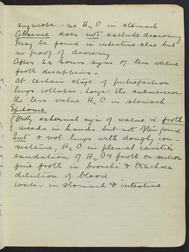 syncope - no H2O in stomach
Absence does not exclude drowning
May be found in intestine also but
no proof of drowning
After 24 hours signs of less value
froth disappears.
At certain stage of putrefaction
lungs collapse. Longer the submersion
the less value H2O in stomach
Epitome
Only external sign of value is froth
weeds in hands but not often found
Int = vol lungs with doughy con-
sistence, H2O in pleural cavities
exudation of H2O & froth on section
fine froth in bronchi & trachea
dilution of blood
Water in stomach & intestine